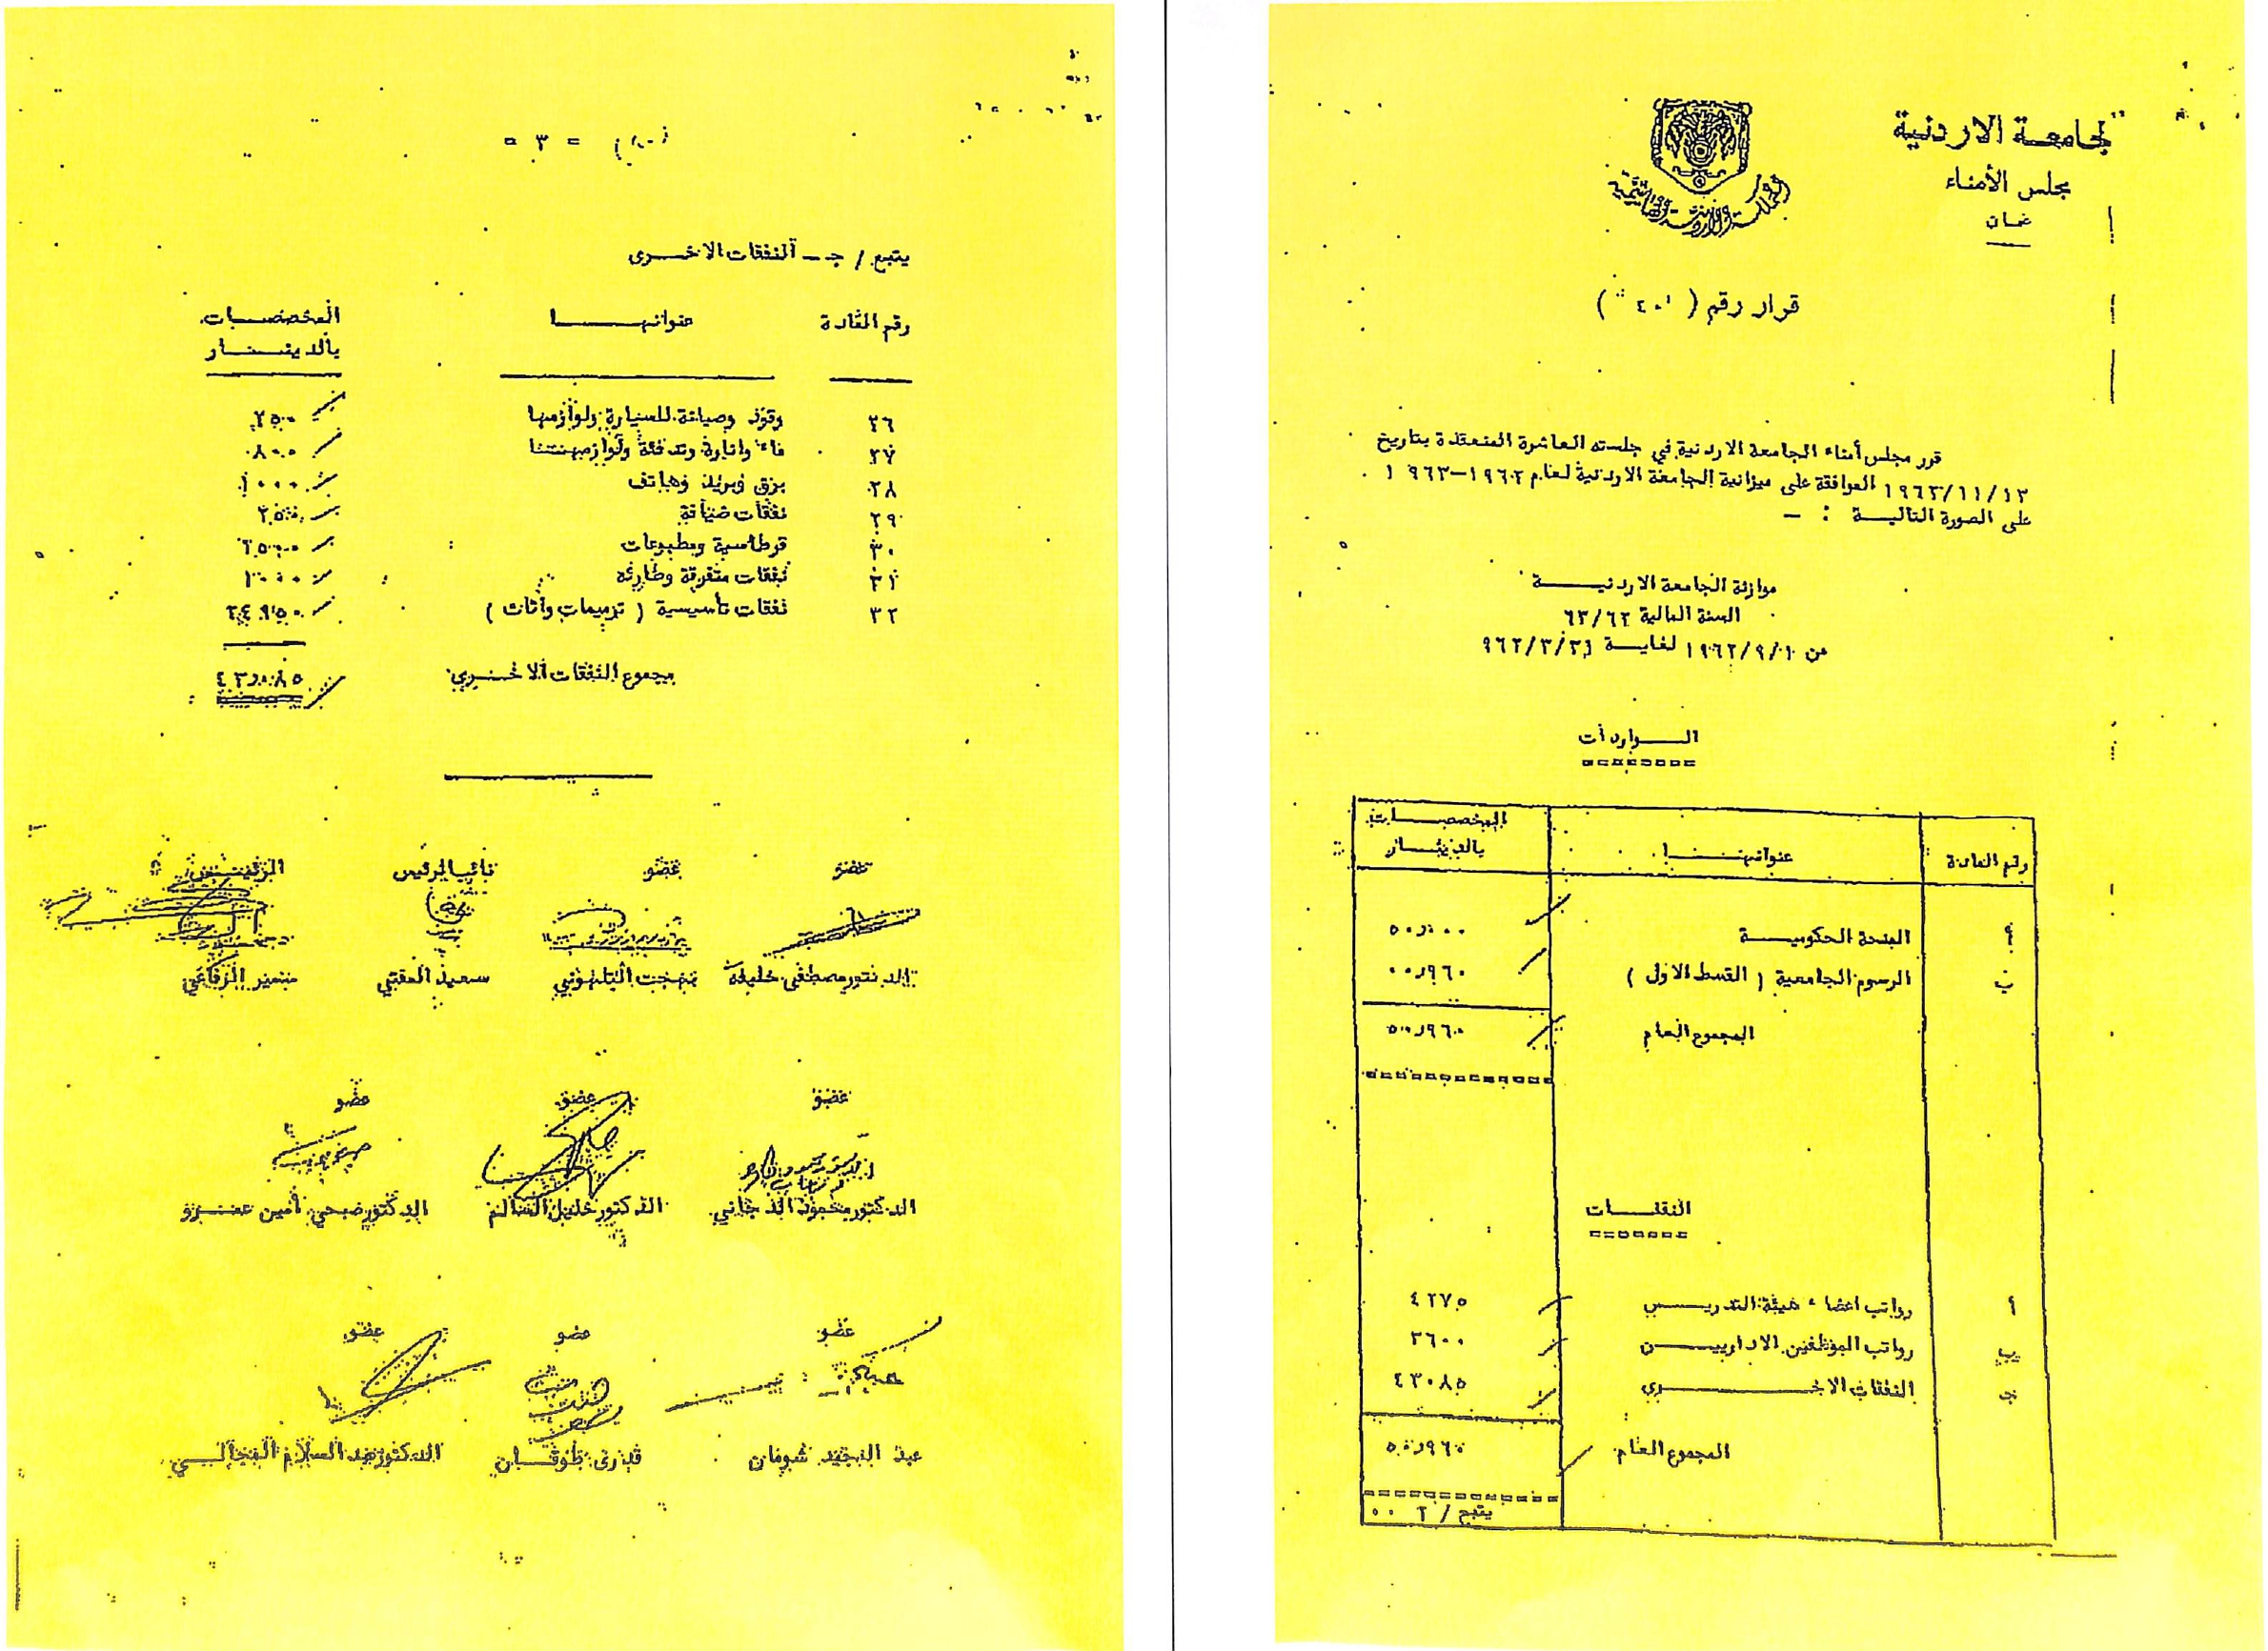 الجامعة الاردنية
مجلس الأمناء
عمان
قرار رقم ( ٤٠١ )
قرر مجلس أمناء الجامعة الاردنية في جلسته العاشرة المنعقدة بتاريخ
١٩٦٢/١١/١٣ الموافقة على ميزانية الجامعة الاردنية لعام ١٩٦٢-١٩٦٣
على الصورة التالية : -
موازنة الجامعة الاردنية
السنة المالية ٦٣/٦٢
من ١٩٦٢/٩/١ لغاية ٩٦٢/٣/٣١
الواردات
رقم المادة عنوانها المخصصات
بالدينار
المنحة الحكومية ٥٠٫٠٠٠
ب الرسوم الجامعية ( القسط الاول ) ٠٠٫٩٦٠
المجموع العام ٥٠٫٩٦٠
النفقات
أ رواتب اعضاء هيئة التدريس ٤٢٧٥
ب رواتب الموظفين الاداريين ٣٦٠٠
ج النفقات الاخرى ٤٣٠٨٥
المجموع العام ٥٠٫٩٦٠
يتبع / ٢ ٠٠
= ٣ =
يتبع / ج - النفقات الاخرى
رقم المادة عنوانها المخصصات
بالدينار
٢٦ وقود وصيانة للسيارة ولوازمها ٢٥٠٠
٢٧ ماء وانارة وتدفئة ولوازمهتنا ٨٠٠
٢٨ برق وبريد وهاتف ١٠٠٠
٢٩ نفقات ضيافة
٣٠ قرطاسية ومطبوعات ٢٥٠٠
٣١ نفقات متفرقة وطارئه ١٠٠٠
٣٢ نفقات تأسيسية ( ترميمات وأثاث ) ٢٤٩٥٠
مجموع النفقات الاخرى ٤٣٫٠٨٥
عضو عضو نائب الرئيس الرئيس
الدكتور مصطفى خليفة بهجت التلهوني سعيد المفتي سمير الرفاعي
عضو عضو عضو
الدكتور محمود الدجاني الدكتور خليل السالم الدكتور صبحي أمين عمرو
عضو عضو عضو
عبد المجيد شومان قدري طوقان الدكتور عبد السلام المجالي